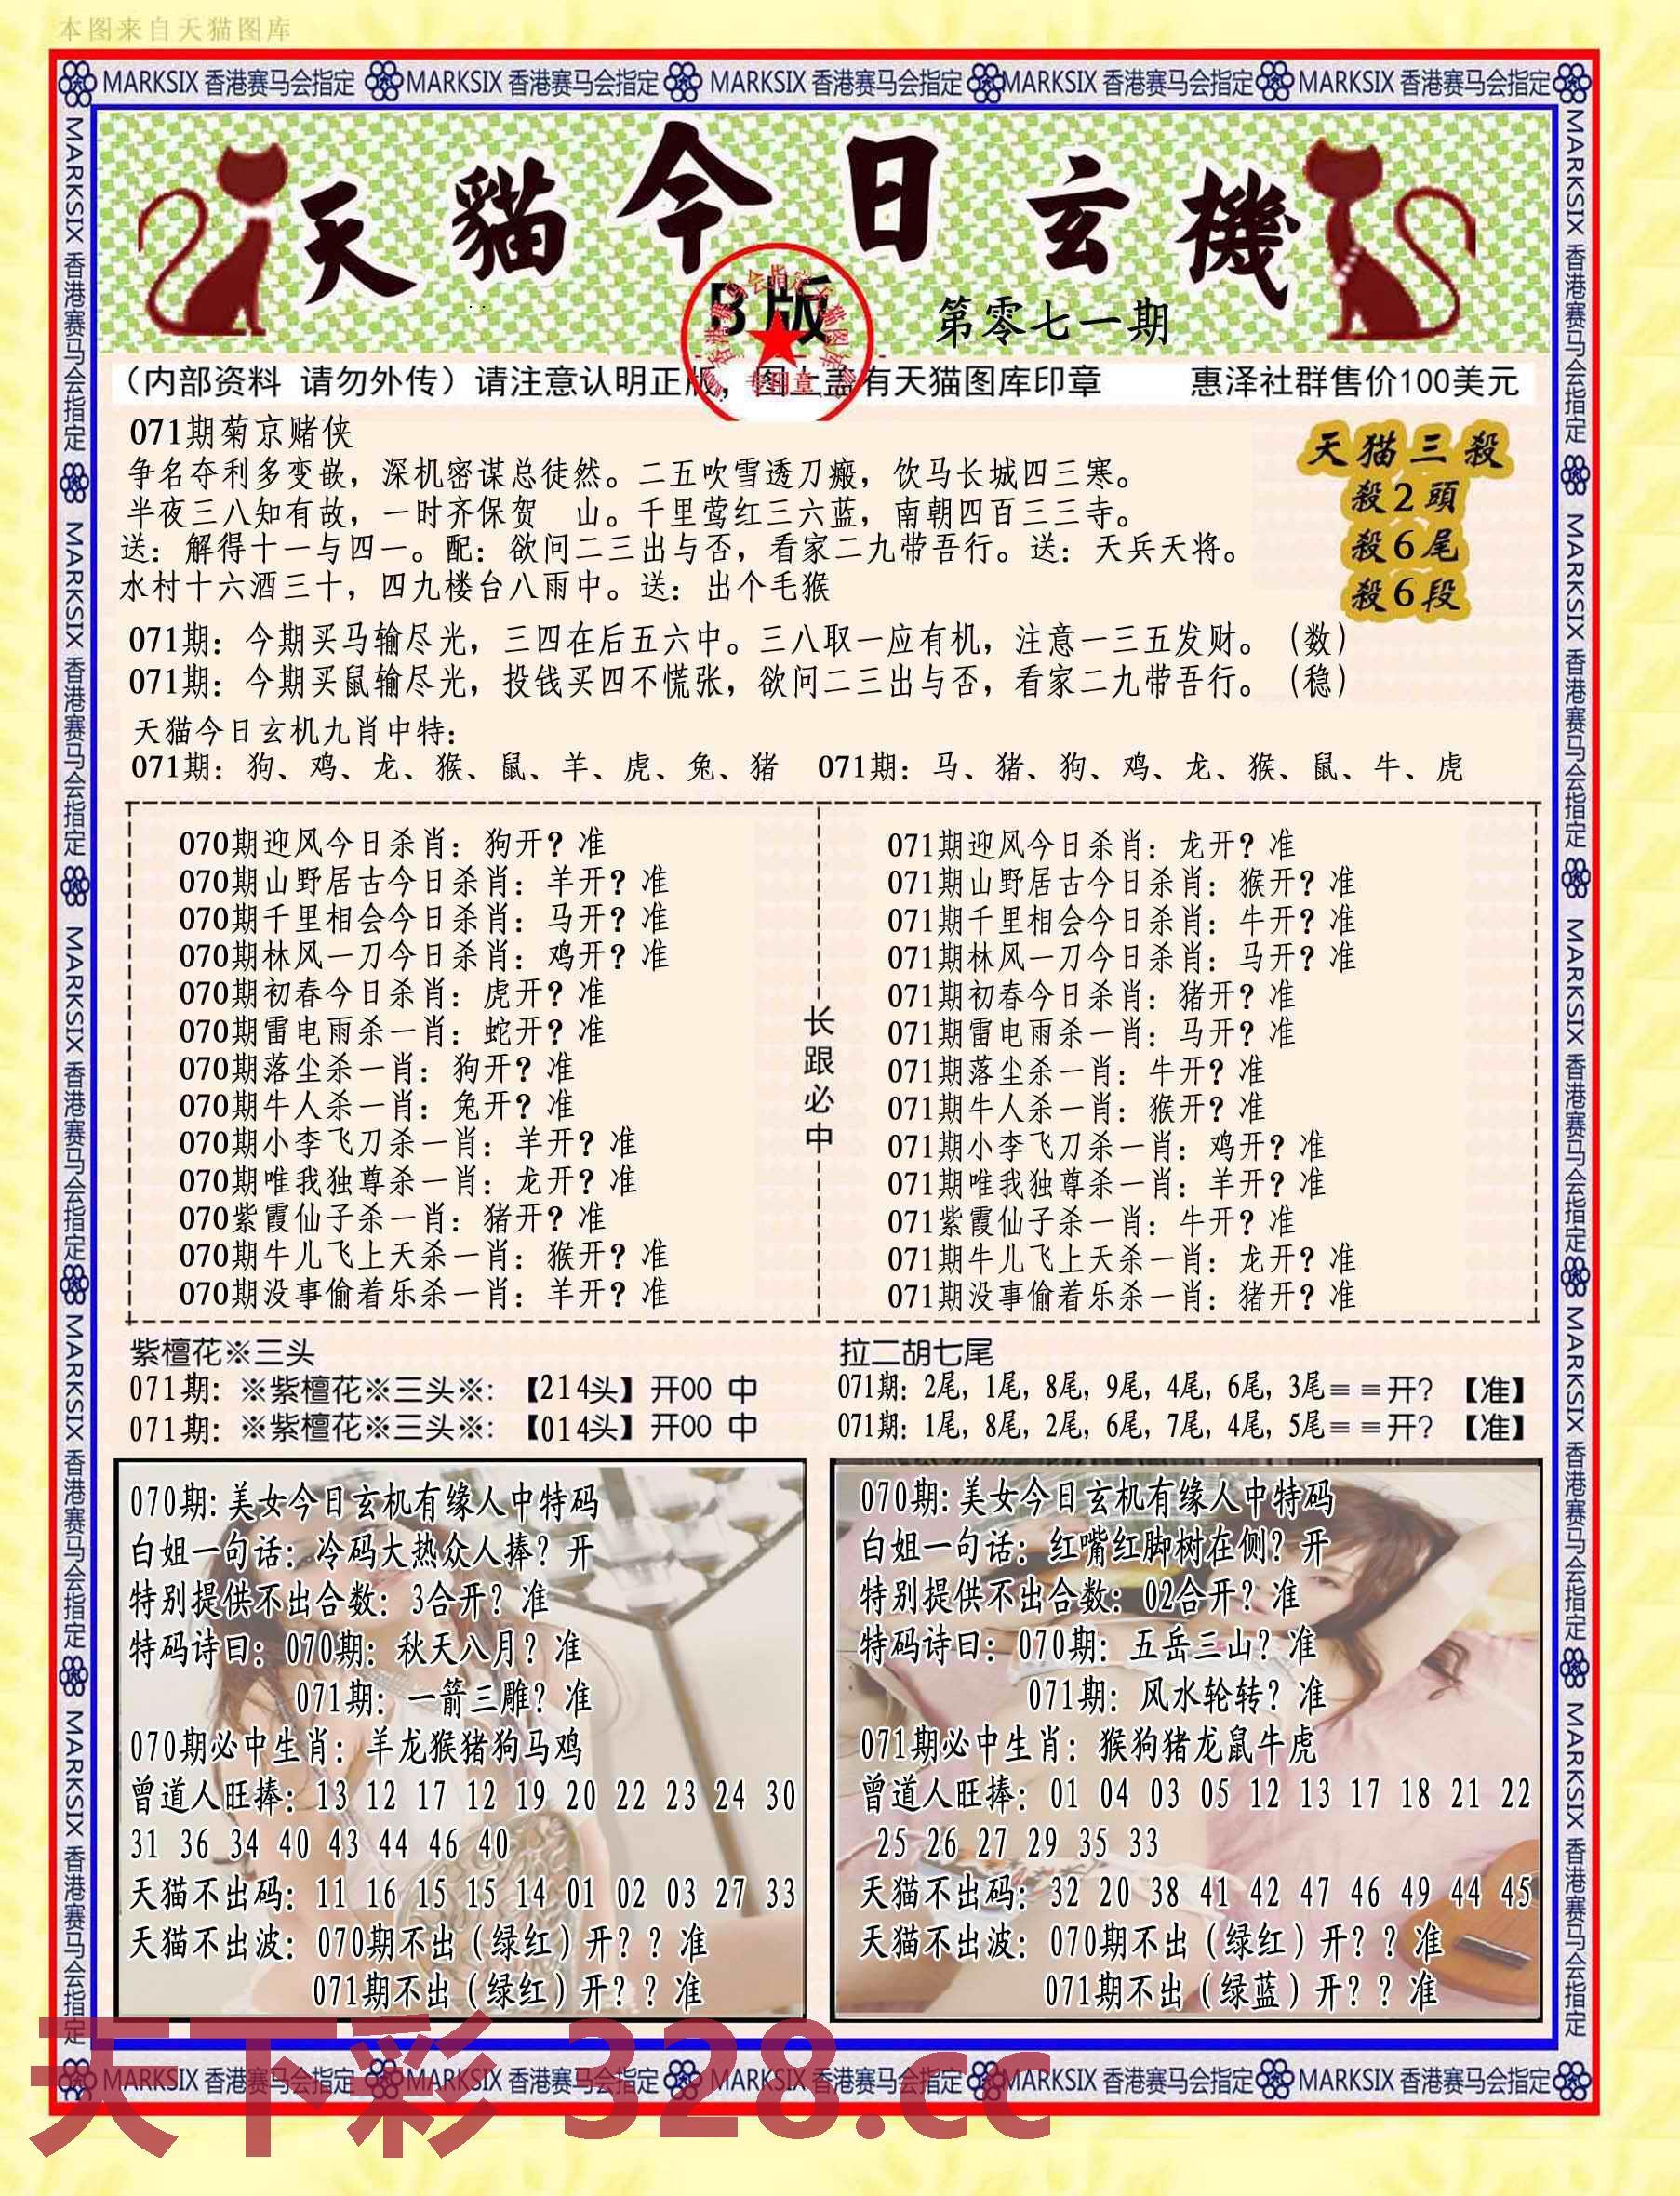 本图来自天猫图库
MARKSIX 香港赛马会指定 MARKSIX 香港赛马会指定 MARKSIX 香港赛马会指定 MARKSIX 香港赛马会指定 MARKSIX 香港赛马会指定
天貓今日玄機
B版
第零七一期
（内部资料 请勿外传）请注意认明正版，图上盖有天猫图库印章 惠泽社群售价100美元
071期菊京赌侠
争名夺利多变嵌，深机密谋总徒然。二五吹雪透刀瘢，饮马长城四三寒。
半夜三八知有故，一时齐保贺 山。千里莺红三六蓝，南朝四百三三寺。
送：解得十一与四一。配：欲问二三出与否，看家二九带吾行。送：天兵天将。
水村十六酒三十，四九楼台八雨中。送：出个毛猴
天猫三殺
殺2頭
殺6尾
殺6段
071期：今期买马输尽光，三四在后五六中。三八取一应有机，注意一三五发财。（数）
071期：今期买鼠输尽光，投钱买四不慌张，欲问二三出与否，看家二九带吾行。（稳）
天猫今日玄机九肖中特：
071期：狗、鸡、龙、猴、鼠、羊、虎、兔、猪 071期：马、猪、狗、鸡、龙、猴、鼠、牛、虎
070期迎风今日杀肖：狗开？准
070期山野居古今日杀肖：羊开？准
070期千里相会今日杀肖：马开？准
070期林风一刀今日杀肖：鸡开？准
070期初春今日杀肖：虎开？准
070期雷电雨杀一肖：蛇开？准
070期落尘杀一肖：狗开？准
070期牛人杀一肖：兔开？准
070期小李飞刀杀一肖：羊开？准
070期唯我独尊杀一肖：龙开？准
070紫霞仙子杀一肖：猪开？准
070期牛儿飞上天杀一肖：猴开？准
070期没事偷着乐杀一肖：羊开？准
长跟必中
071期迎风今日杀肖：龙开？准
071期山野居古今日杀肖：猴开？准
071期千里相会今日杀肖：牛开？准
071期林风一刀今日杀肖：马开？准
071期初春今日杀肖：猪开？准
071期雷电雨杀一肖：马开？准
071期落尘杀一肖：牛开？准
071期牛人杀一肖：猴开？准
071期小李飞刀杀一肖：鸡开？准
071期唯我独尊杀一肖：羊开？准
071紫霞仙子杀一肖：牛开？准
071期牛儿飞上天杀一肖：龙开？准
071期没事偷着乐杀一肖：猪开？准
紫檀花※三头
071期：※紫檀花※三头※：【214头】开00 中
071期：※紫檀花※三头※：【014头】开00 中
拉二胡七尾
071期：2尾，1尾，8尾，9尾，4尾，6尾，3尾＝＝开？【准】
071期：1尾，8尾，2尾，6尾，7尾，4尾，5尾＝＝开？【准】
070期：美女今日玄机有缘人中特码
白姐一句话：冷码大热众人捧？开
特别提供不出合数：3合开？准
特码诗曰：070期：秋天八月？准
071期：一箭三雕？准
070期必中生肖：羊龙猴猪狗马鸡
曾道人旺捧：13 12 17 12 19 20 22 23 24 30
31 36 34 40 43 44 46 40
天猫不出码：11 16 15 15 14 01 02 03 27 33
天猫不出波：070期不出（绿红）开？？准
071期不出（绿红）开？？准
070期：美女今日玄机有缘人中特码
白姐一句话：红嘴红脚树在侧？开
特别提供不出合数：02合开？准
特码诗曰：070期：五岳三山？准
071期：风水轮转？准
071期必中生肖：猴狗猪龙鼠牛虎
曾道人旺捧：01 04 03 05 12 13 17 18 21 22
25 26 27 29 35 33
天猫不出码：32 20 38 41 42 47 46 49 44 45
天猫不出波：070期不出（绿红）开？？准
071期不出（绿蓝）开？？准
MARKSIX 香港赛马会指定 MARKSIX 香港赛马会指定 MARKSIX 香港赛马会指定 MARKSIX 香港赛马会指定
MARKSIX 香港赛马会指定 MARKSIX 香港赛马会指定 MARKSIX 香港赛马会指定 MARKSIX 香港赛马会指定
MARKSIX 香港赛马会指定 MARKSIX 香港赛马会指定 MARKSIX 香港赛马会指定 MARKSIX 香港赛马会指定 MARKSIX 香港赛马会指定
天下彩 328.cc